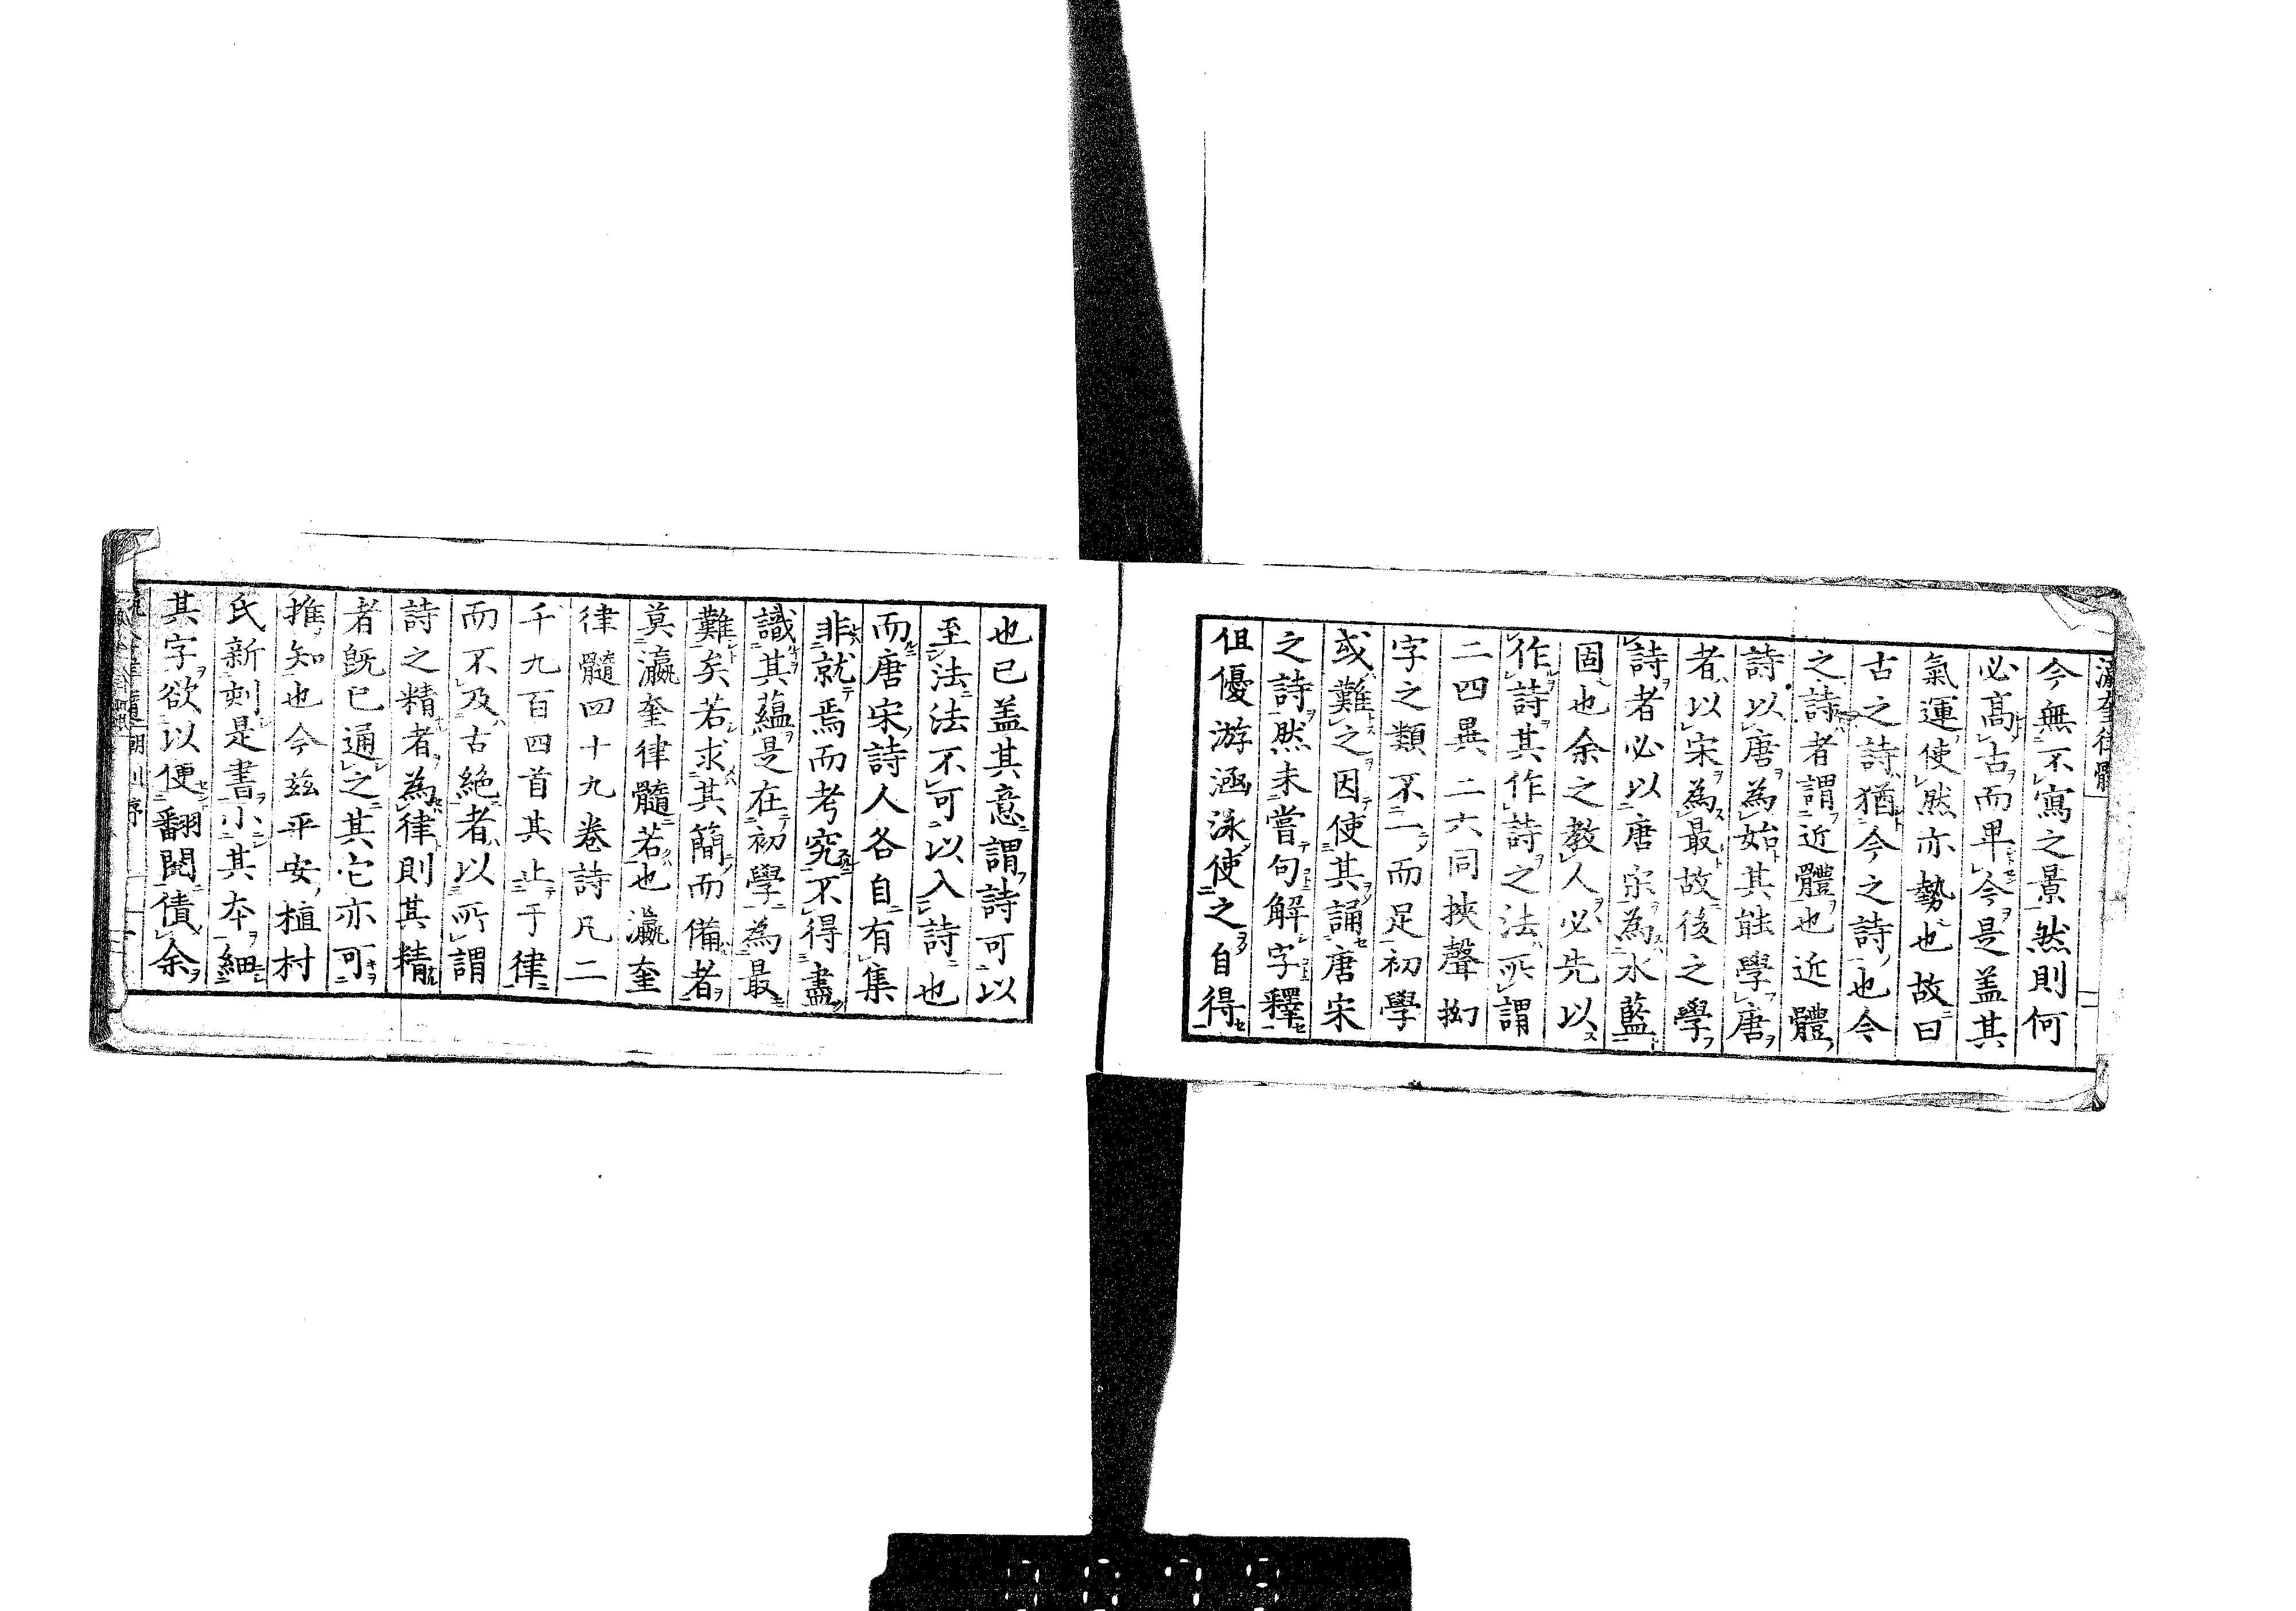 瀛奎律髓
今無不寫之景然則何
必高古而卑今是盖其
氣運使然亦勢也故曰
古之詩猶今之詩也今
之詩者謂近體也近體
詩以唐為始其能學唐
者以宋為最故後之學
詩者必以唐宋為水藍
固也余之教人必先以
作詩其作詩之法所謂
二四異二六同挾聲拗
字之類不一而足初學
或難之因使其誦唐宋
之詩然未嘗句解字釋
伹優游涵泳使之自得
也已盖其意謂詩可以
至法法不可以入詩也
而唐宋詩人各自有集
非就焉而考究不得盡
識其蘊是在初學為最
難矣若求其簡而備者
莫瀛奎律髓若也瀛奎
律髓四十九卷詩凡二
千九百四首其止于律
而不及古絶者以所謂
詩之精者為律則其精
者既已通之其它亦可
推知也今玆平安植村
氏新刻是書小其本細
其字欲以便翻閱債余